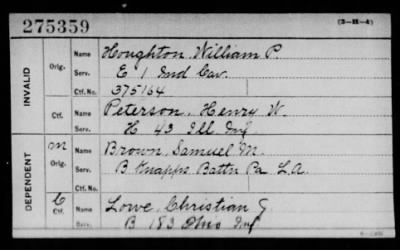 275359
(3-H-4)
INVALID
Orig.
Name Houghton, William P.
Serv. E 1 Ind Cav.
Ctf. No. 375164
Ctf.
Name Peterson, Henry W.
Serv. H 43 Ill Inf
DEPENDENT
m
Orig.
Name Brown, Samuel M.
Serv. B Knapps Battn Pa L.A.
C
Ctf.
Name Lowe, Christian G.
Serv. B 183 Ohio Inf